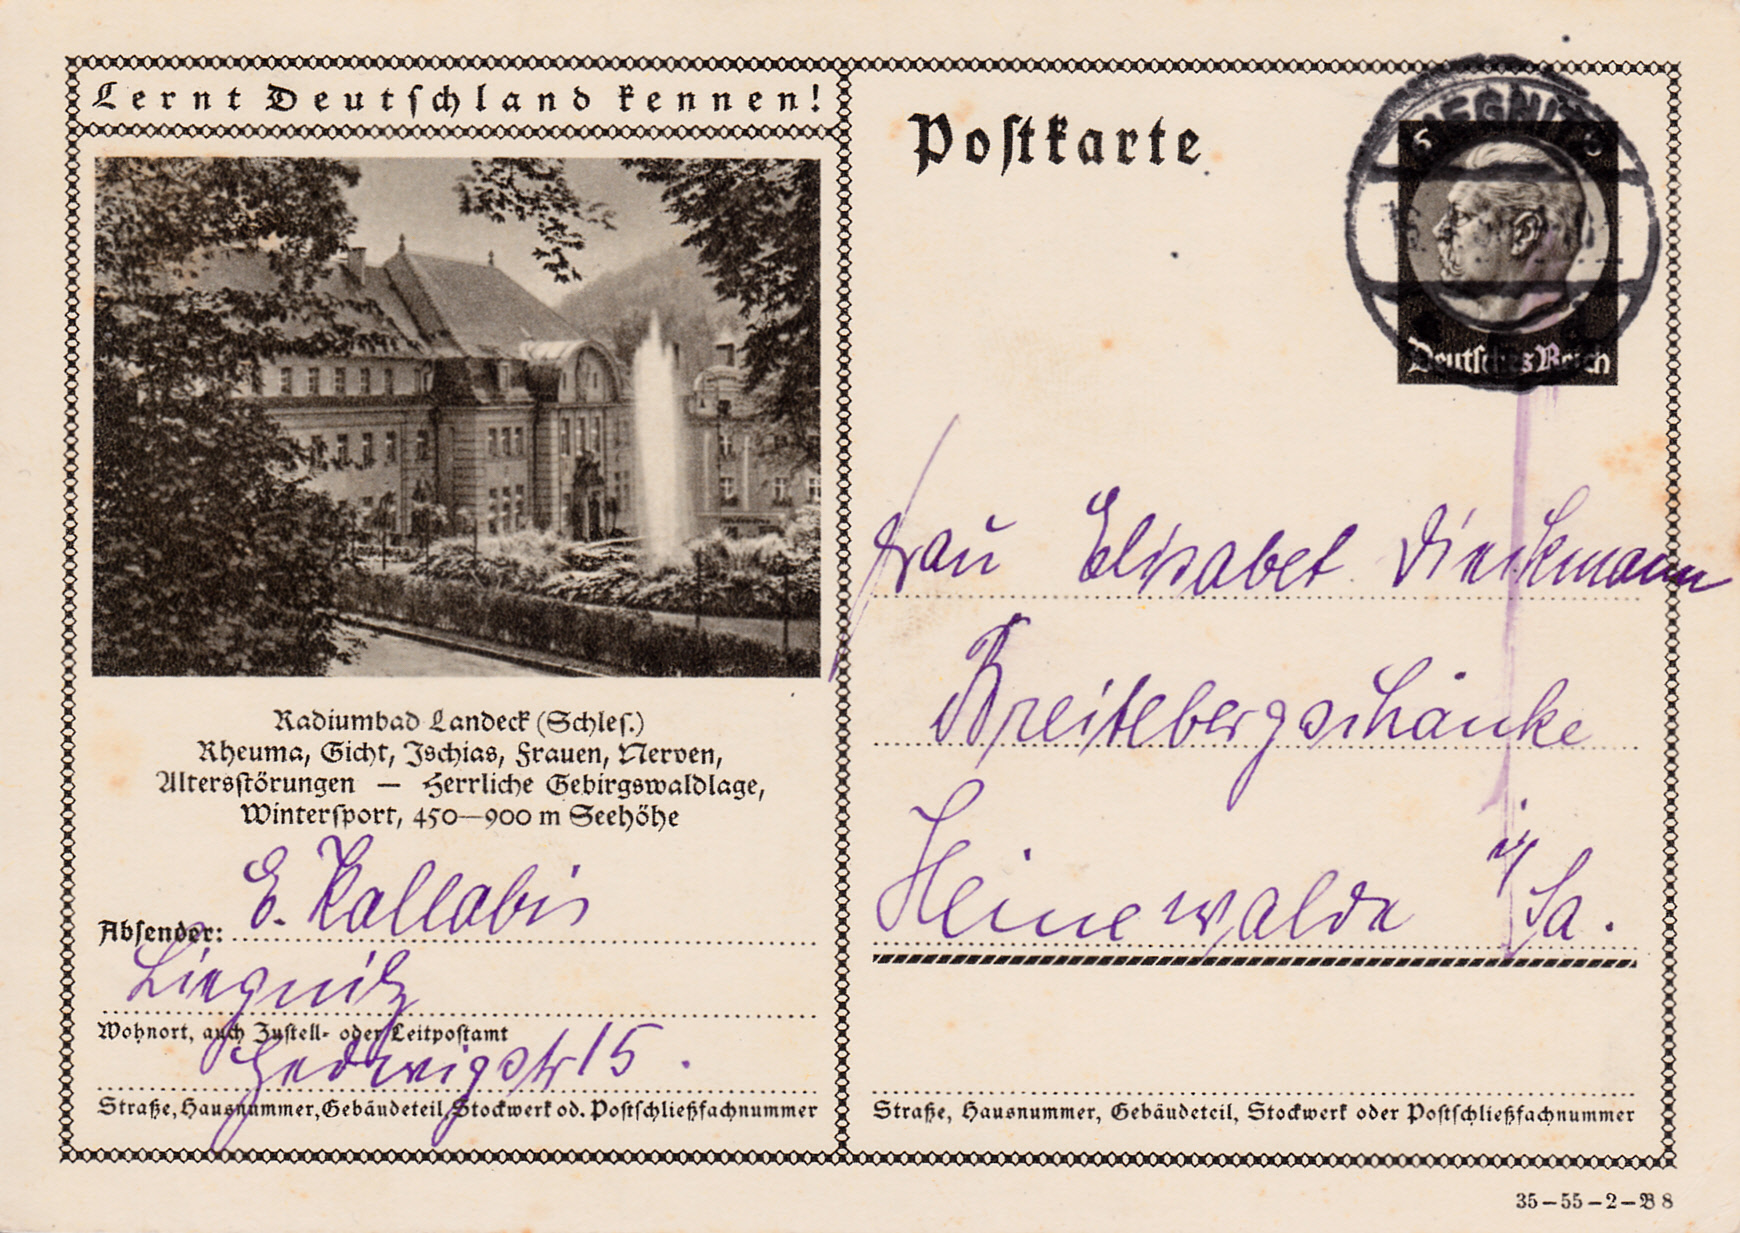 Lernt Deutschland kennen!
Radiumbad Landeck (Schles.)
Rheuma, Gicht, Ischias, Frauen, Nerven,
Altersstörungen — Herrliche Gebirgswaldlage,
Wintersport, 450—900 m Seehöhe
Absender: E. Kallabis
Liegnitz
Wohnort, auch Zustell- oder Leitpostamt
Hedwigstr 15.
Straße, Hausnummer, Gebäudeteil, Stockwerk od. Postschließfachnummer
Postkarte
LIEGNITZ
Deutsches Reich
Frau Elisabet Dieckmann
Breitebergschänke
Heinewalde i/Sa.
Straße, Hausnummer, Gebäudeteil, Stockwerk oder Postschließfachnummer
35—55—2—B 8